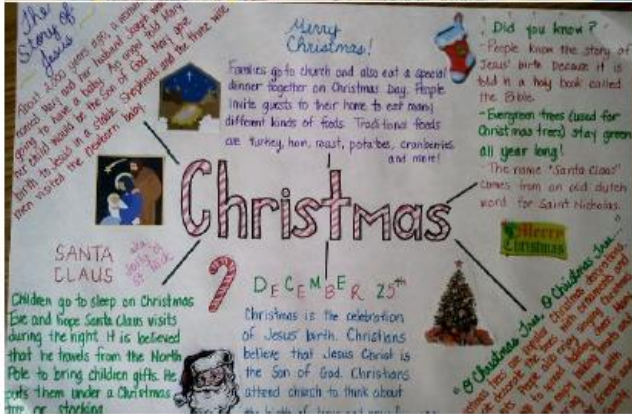 The
Story of
Jesus
About 2,000 years ago, a woman
named Mary and her husband Joseph were
going to have a baby. An angel told Mary
her child would be the Son of God. Mary gave
birth to Jesus in a stable. Shepherds and the three wise
men visited the newborn baby.
Merry
Christmas!
Families go to church and also eat a special
dinner together on Christmas Day. People
invite guests to their home to eat many
different kinds of foods. Traditional foods
are turkey, ham, roast, potatoes, cranberries
and more!
Did you know?
-People know the story of
Jesus' birth because it is
told in a holy book called
the Bible.
-Evergreen trees (used for
Christmas trees) stay green
all year long!
-The name "Santa Claus"
comes from an old dutch
word for Saint Nicholas.
Christmas
Merry
Christmas
SANTA
CLAUS
aka
Jolly ol'
St. Nick
Children go to sleep on Christmas
Eve and hope Santa Claus visits
during the night. It is believed
that he travels from the North
Pole to bring children gifts. He
puts them under a Christmas
tree or stocking.
DECEMBER 25th
Christmas is the celebration
of Jesus' birth. Christians
believe that Jesus Christ is
the Son of God. Christians
attend church to think about
"O Christmas Tree, O Christmas Tree..."
Christmas decorations.
ornaments and